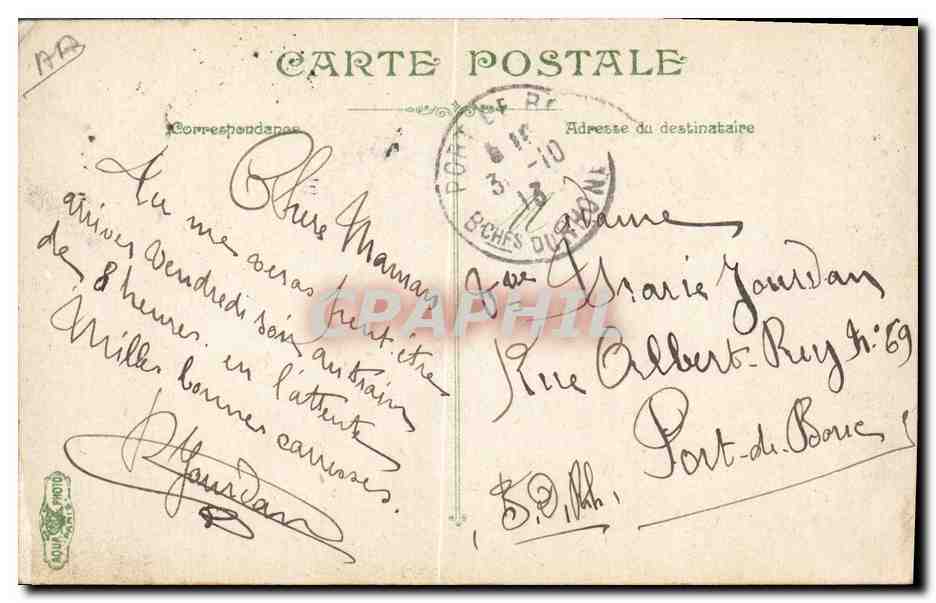 AA
CARTE POSTALE
Correspondance
Chère Maman
Tu me veras peut-être
arriver vendredi soir au train
de 8 heures. en l'attente
Milles bonnes carresses.
Jourdan
AQUA PHOTO
PARIS
PORT DE B
3 -10
13
BCHES DU RHONE
Adresse du destinataire
Madame
Vve Marie Jourdan
Rue Albert-Rey No 69
Port-de-Bouc
B. D. Rh.
CRAPHIL